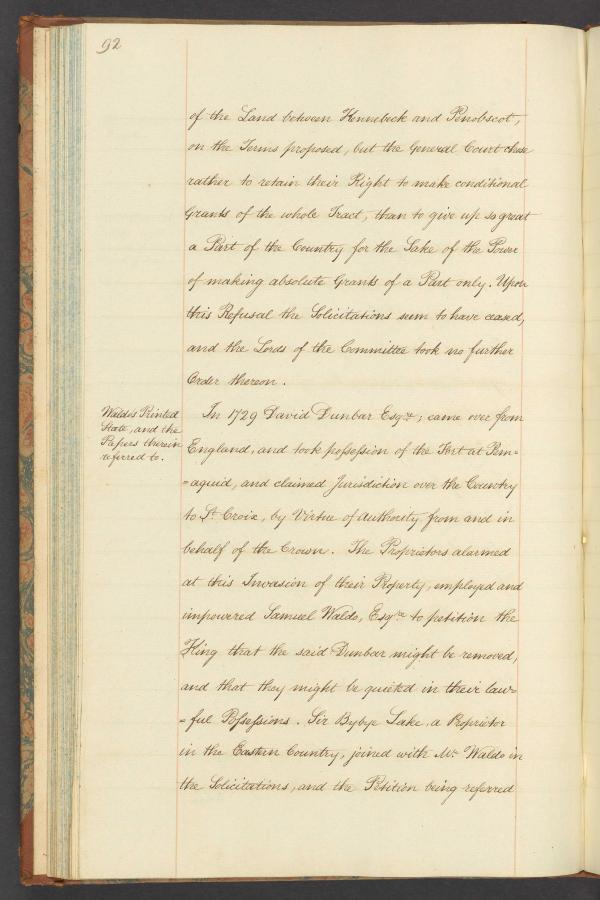 92
of the Land between Kennebeck and Penobscot,
on the Terms proposed, but the General Court chose
rather to retain their Right to make conditional
Grants of the whole Tract, than to give up so great
a Part of the Country for the Sake of the Power
of making absolute Grants of a Part only. Upon
this Refusal the Solicitations seem to have ceased,
and the Lords of the Committee took no further
Order thereon.
Waldo's Printed
State, and the
Papers therein
referred to.
In 1729 David Dunbar Esqre; came over from
England, and took possession of the Fort at Pem=
=aquid, and claimed Jurisdiction over the Country
to St Croix, by Virtue of Authority from and in
behalf of the Crown. The Proprietors alarmed
at this Invasion of their Property, employed and
impowered Samuel Waldo, Esqre to petition the
King that the said Dunbar might be removed,
and that they might be quieted in their law=
=ful Possessions. Sir Bybye Lake, a Proprietor
in the Eastern Country, joined with Mr Waldo in
the Solicitations, and the Petition being referred